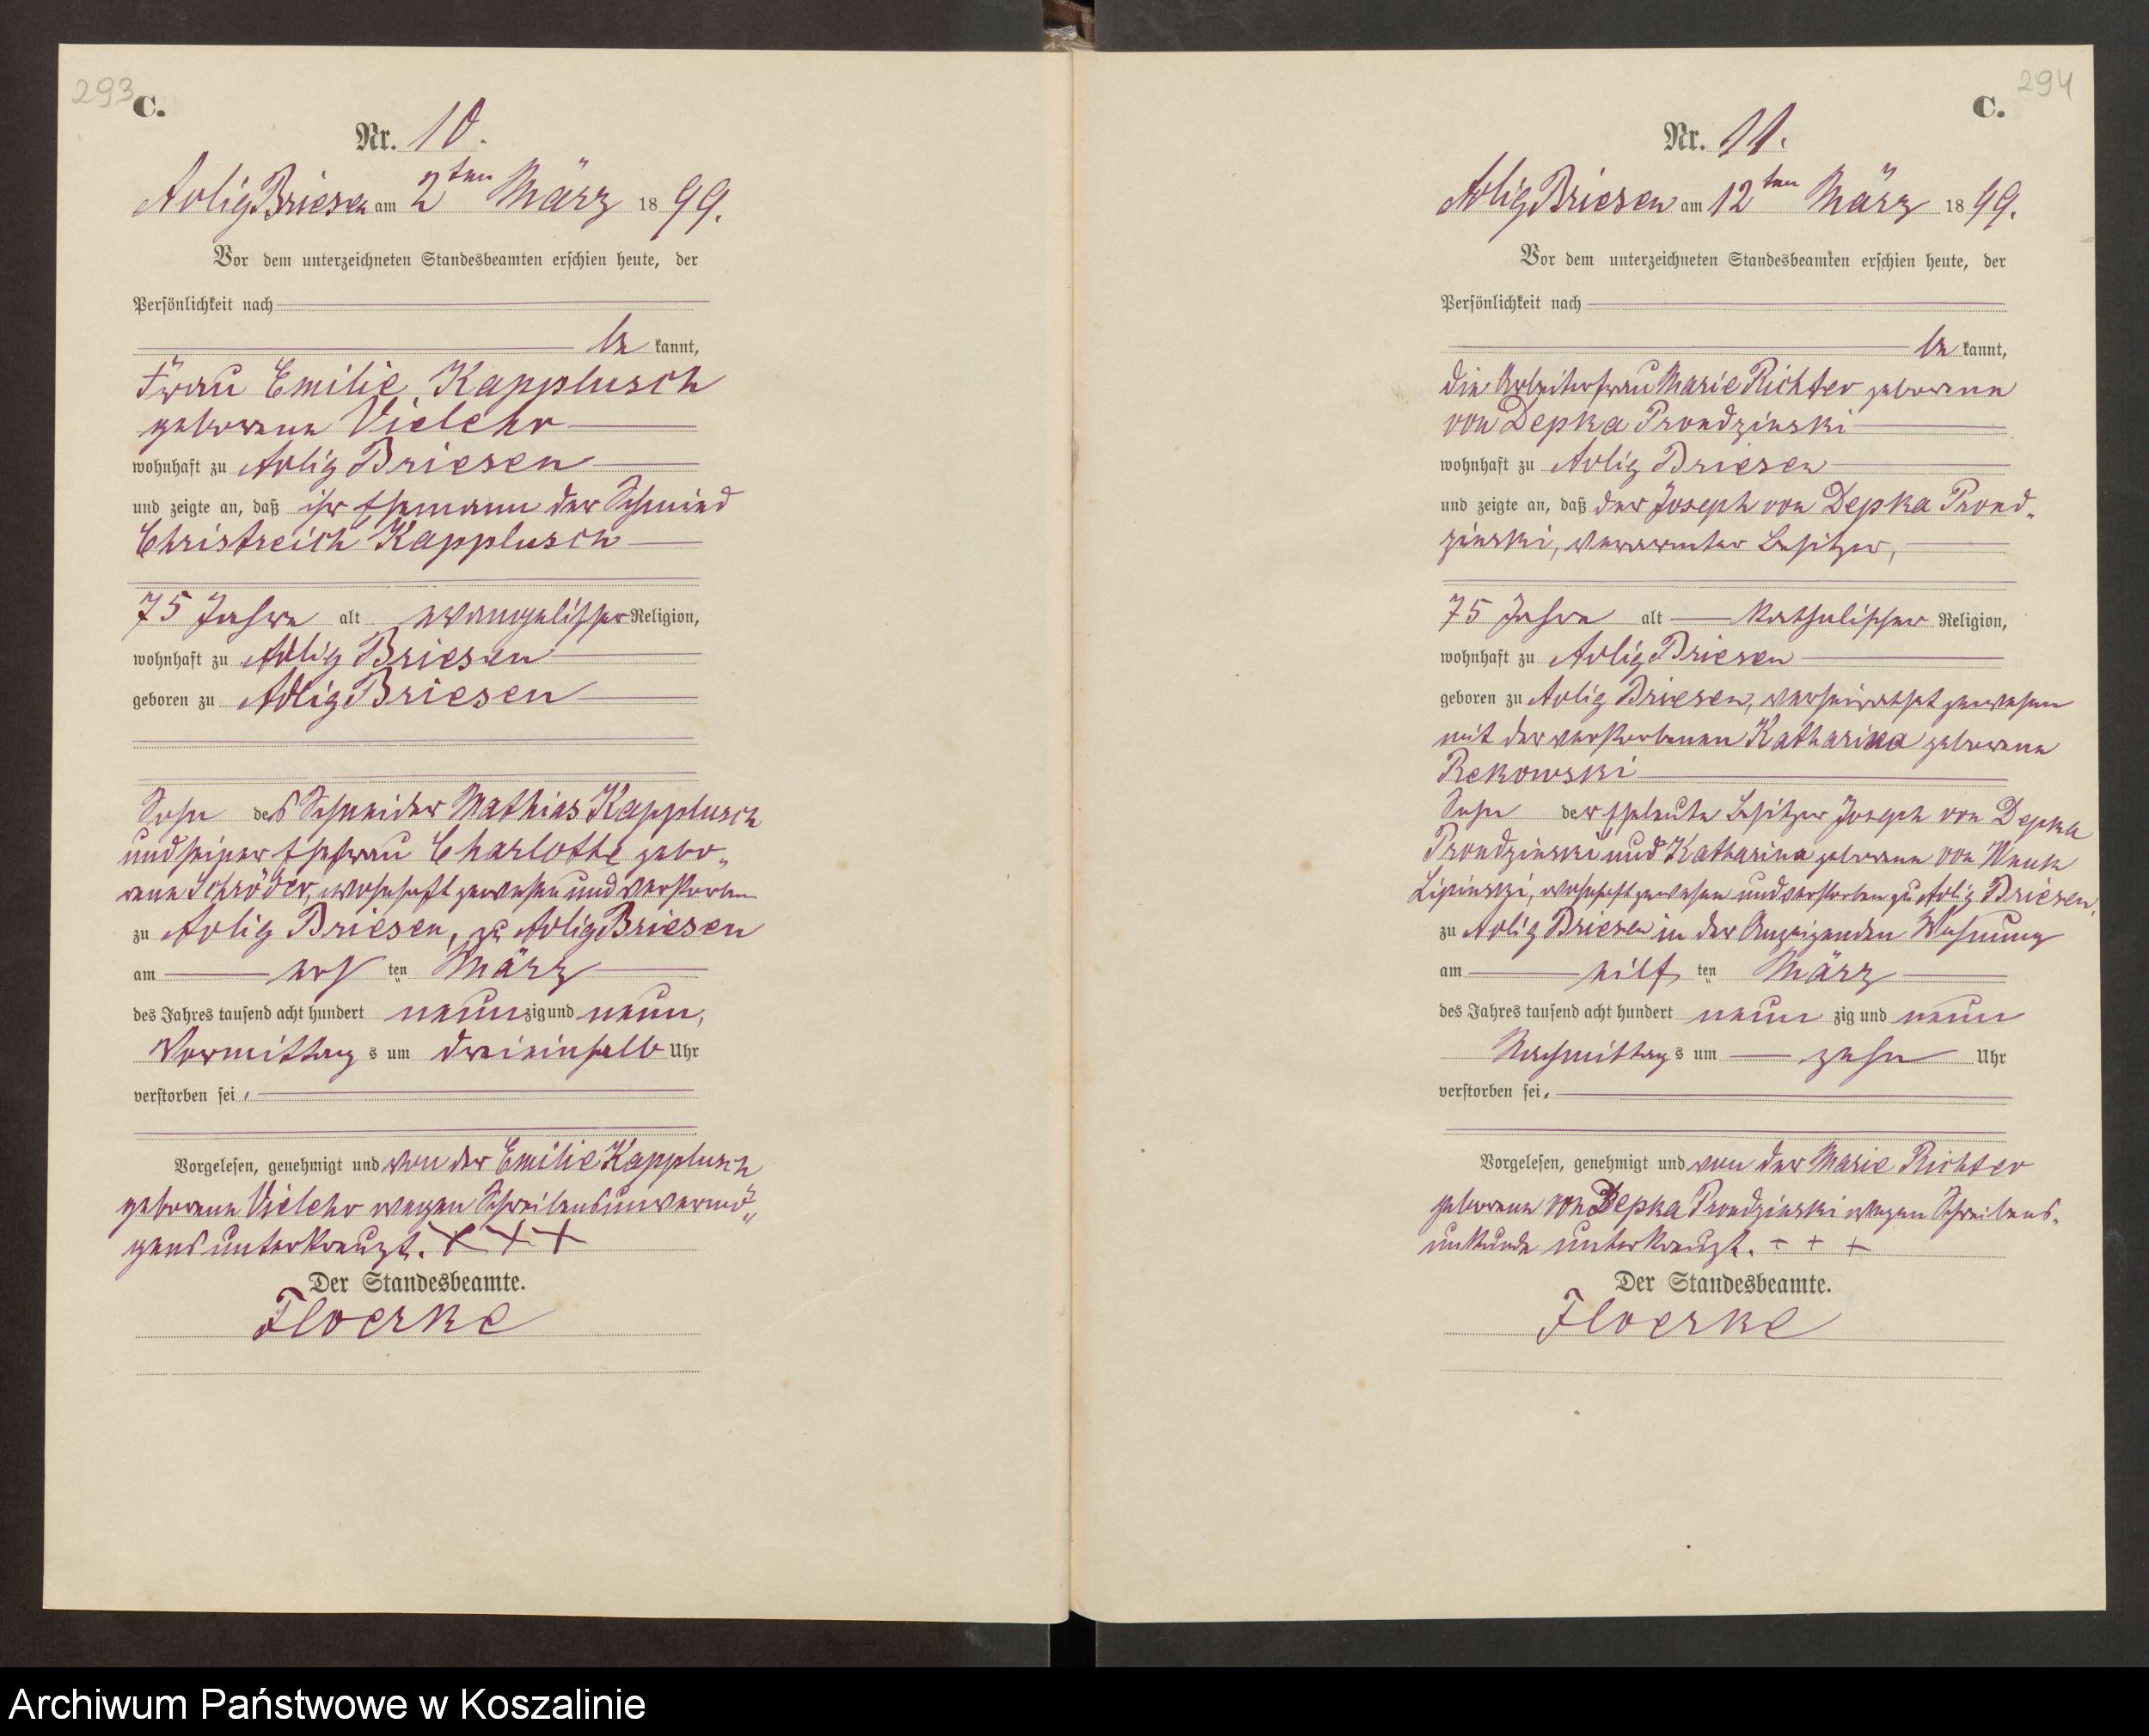 293
C.
Nr. 10.
Adlig Briesen am 2ten März 1899.
Vor dem unterzeichneten Standesbeamten erschien heute, der
Persönlichkeit nach
be kannt,
Frau Emilie Kapplusch
geborene Vielehr
wohnhaft zu Adlig Briesen
und zeigte an, daß ihr Ehemann der Schmied
Christreich Kapplusch
75 Jahre alt evangelischer Religion,
wohnhaft zu Adlig Briesen
geboren zu Adlig Briesen
Sohn des Schneider Mathias Kapplusch
und seiner Ehefrau Charlotte gebo-
rene Schröder, wohnhaft gewesen und verstorben
zu Adlig Briesen, zu Adlig Briesen
am ersten März
des Jahres tausend acht hundert neunzig und neun,
Vormittags um dreieinhalb Uhr
verstorben sei.
Vorgelesen, genehmigt und von der Emilie Kapplusch
geborene Vielehr wegen Schreibensunvermö-
gens unterkreuzt. + + +
Der Standesbeamte.
Floerke
294
C.
Nr. 11.
Adlig Briesen am 12ten März 1899.
Vor dem unterzeichneten Standesbeamten erschien heute, der
Persönlichkeit nach
be kannt,
die Arbeiterfrau Marie Richter geborene
von Depka Prondzinski
wohnhaft zu Adlig Briesen
und zeigte an, daß der Joseph von Depka Prond-
zinski, verarmter Besitzer,
75 Jahre alt katholischer Religion,
wohnhaft zu Adlig Briesen
geboren zu Adlig Briesen, verheirathet gewesen
mit der verstorbenen Katharina geborene
Rekowski
Sohn der Eheleute Besitzer Joseph von Depka
Prondzinski und Katharina geborene von Wnuk
Lipinski, wohnhaft gewesen und verstorben zu Adlig Briesen,
zu Adlig Briesen in der Anzeigenden Wohnung
am eilften März
des Jahres tausend acht hundert neunzig und neun
Nachmittags um zehn Uhr
verstorben sei.
Vorgelesen, genehmigt und von der Marie Richter
geborene von Depka Prondzinski wegen Schreibens-
unkunde unterkreuzt. + + +
Der Standesbeamte.
Floerke
Archiwum Państwowe w Koszalinie